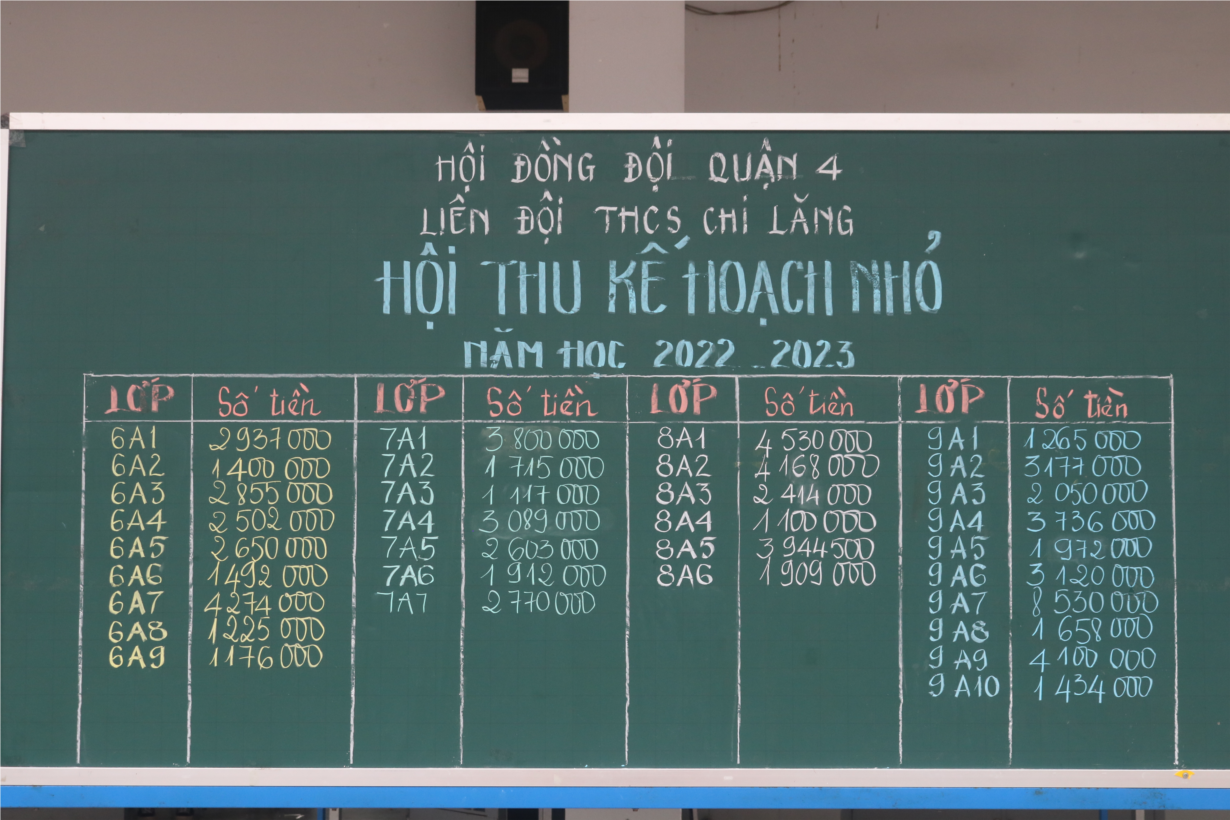 HỘI ĐỒNG ĐỘI QUẬN 4
LIÊN ĐỘI THCS CHI LĂNG
HỘI THU KẾ HOẠCH NHỎ
NĂM HỌC 2022 - 2023
LỚP Số tiền LỚP Số tiền LỚP Số tiền LỚP Số tiền
6A1 2 937 000 7A1 3 800 000 8A1 4 530 000 9A1 1 265 000
6A2 1 400 000 7A2 1 715 000 8A2 4 168 000 9A2 3 177 000
6A3 2 855 000 7A3 1 117 000 8A3 2 414 000 9A3 2 050 000
6A4 2 502 000 7A4 3 089 000 8A4 1 100 000 9A4 3 736 000
6A5 2 650 000 7A5 2 603 000 8A5 3 944 500 9A5 1 972 000
6A6 1 492 000 7A6 1 912 000 8A6 1 909 000 9A6 3 120 000
6A7 4 274 000 7A7 2 770 000 9A7 8 530 000
6A8 1 225 000 9A8 1 658 000
6A9 1 176 000 9A9 4 100 000
9A10 1 434 000